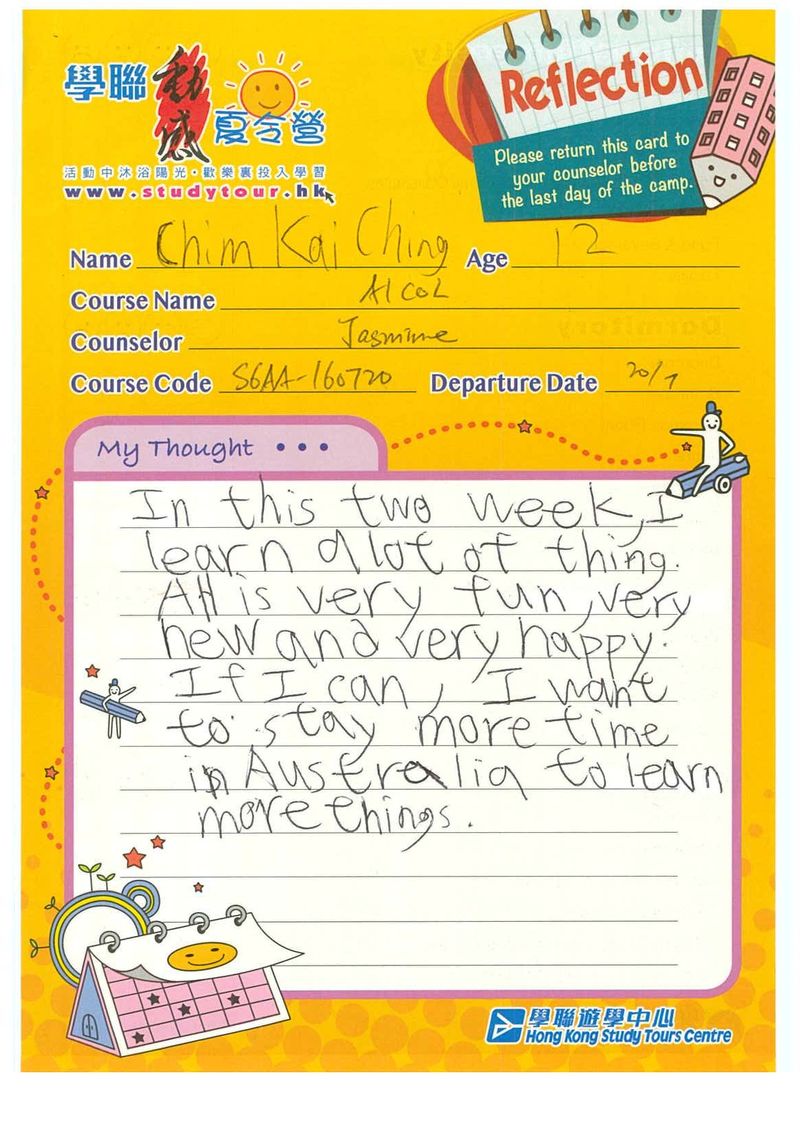 學聯動感夏令營
活動中沐浴陽光·歡樂裏投入學習
www.studytour.hk
Reflection
Please return this card to
your counselor before
the last day of the camp.
Name Chim Kai Ching Age 12
Course Name AICOL
Counselor Jasmine
Course Code S6AA-160720 Departure Date 20/7
My Thought • • •
In this two week, I
learn alot of thing.
All is very fun, very
new and very happy.
If I can, I want
to stay more time
in Australia to learn
more things.
學聯遊學中心
Hong Kong Study Tours Centre